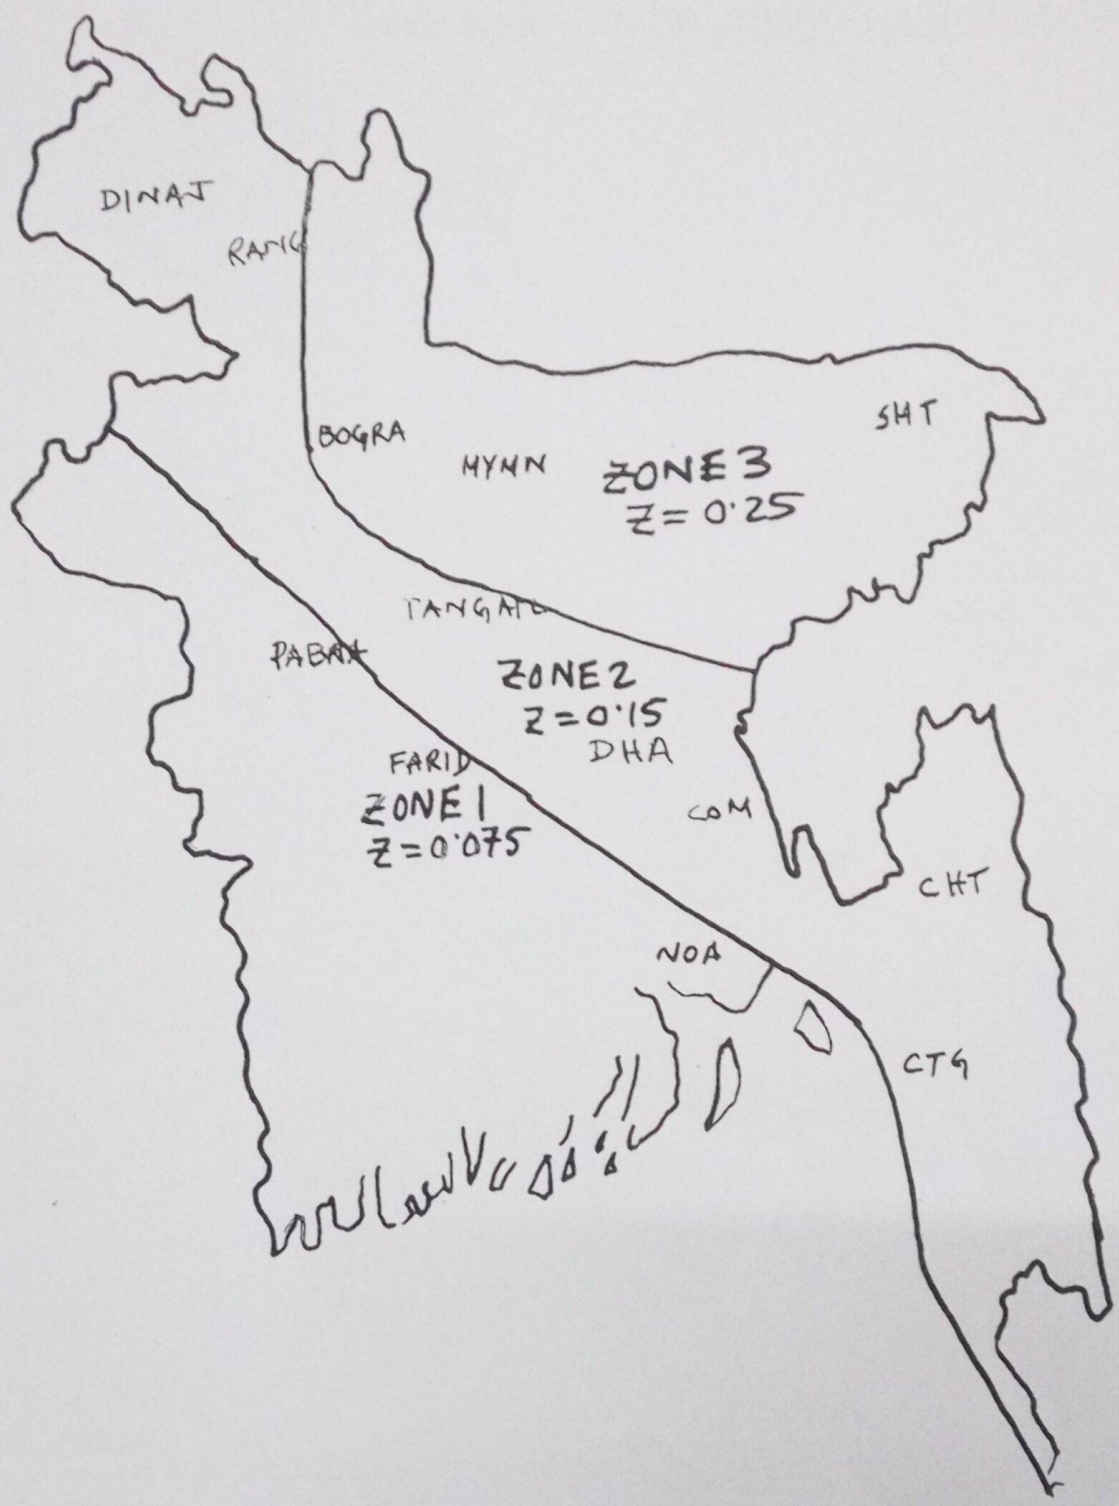 DINAJ
RANG
BOGRA
MYMN
SHT
ZONE 3
Z = 0.25
TANGAIL
PABNA
ZONE 2
Z = 0.15
DHA
FARID
ZONE 1
Z = 0.075
COM
CHT
NOA
CTG